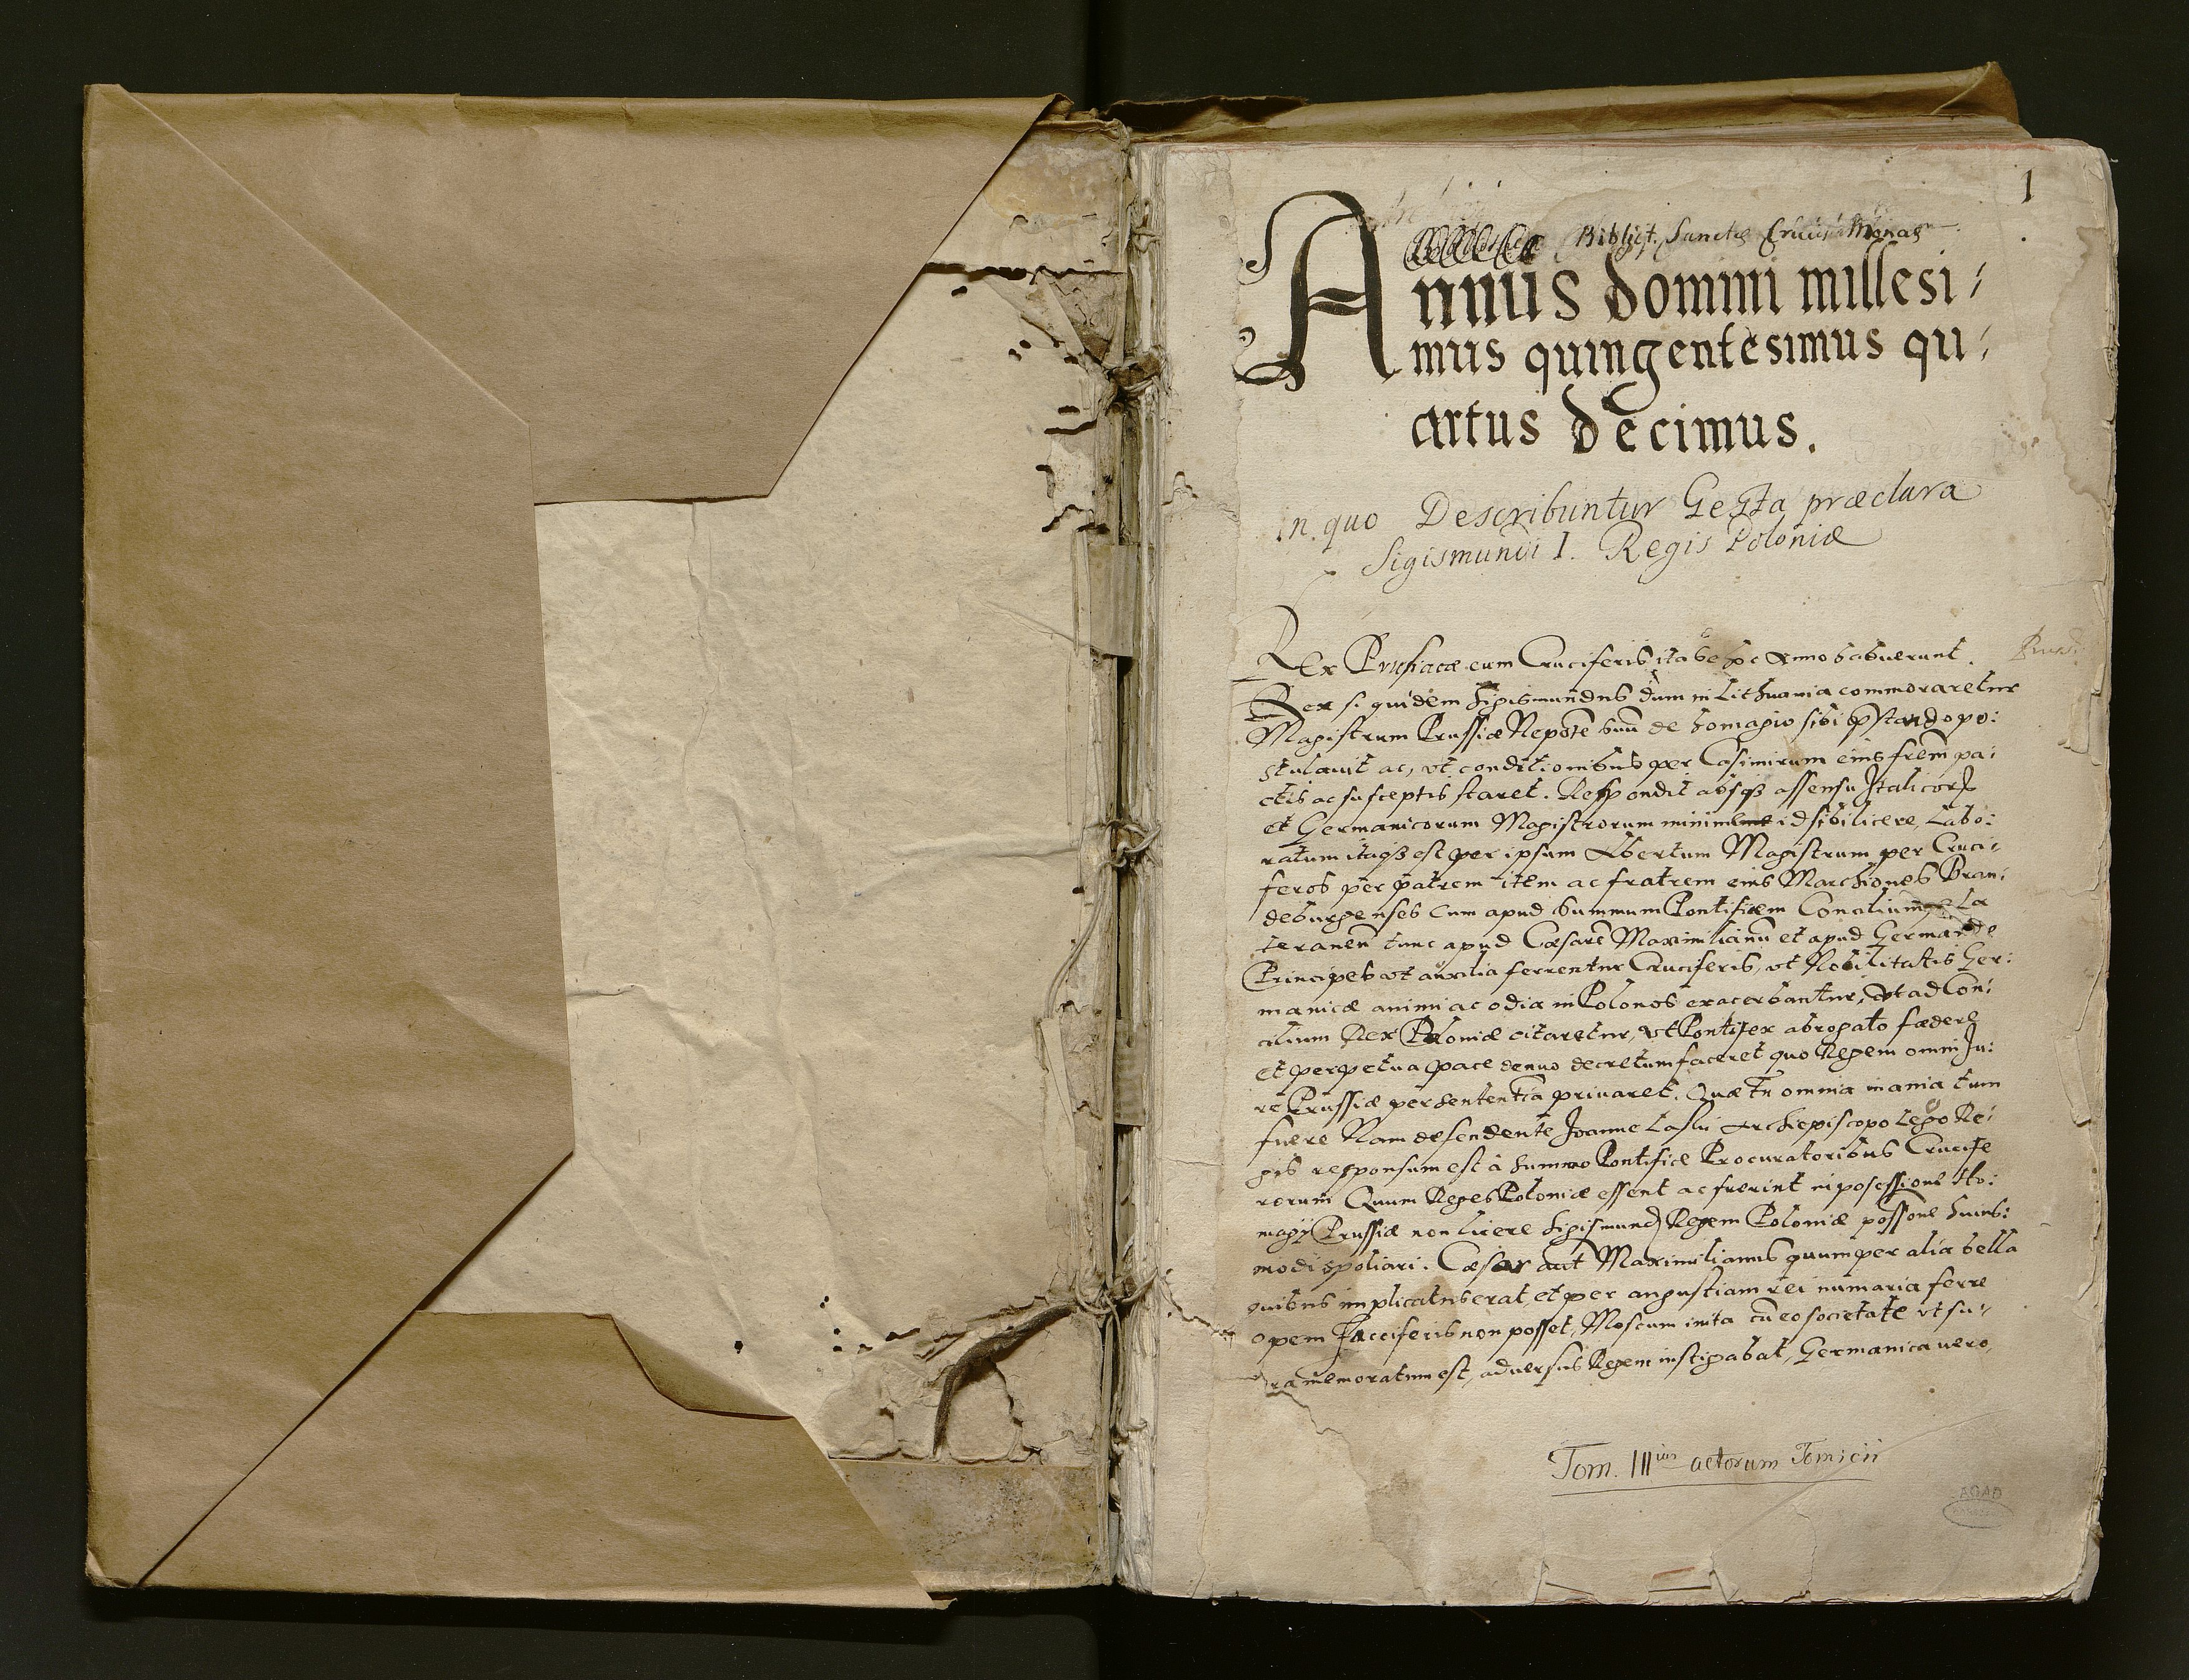 1
Bibliot. Sanctæ Crucis Monas
Annus domini millesi:
mus quingentesimus qu:
artus decimus.
in quo Describuntur Gesta præclara
Sigismundi I. Regis Poloniæ
Res Prussiacæ cum Cruciferis ita se hoc Anno habuerunt.
Rex si quidem Sigismundus dum in Lithuania commoraretur
Magistrum Prussiæ Nepote suũ de homagio sibi pstando po:
stulauit ac, vt conditionibus per Casimirum eius frem pa:
ctis ac susceptis staret. Respondit absqꝫ assensu Italicorꝝ
et Germanicorum Magistrorum minime id sibi licere, Labo:
ratum itaqꝫ est per ipsum Albertum Magistrum per Cruci:
feros per patrem item ac fratrem eius Marchiones Bran:
deburgenses cum apud Summum Pontificem Conciliumqꝫ La
teranen̄ tunc apud Cæsarē Maximilianũ et apud Germaniæ
Principes vt auxilia ferrentur Cruciferis, vt Nobilitatis Ger:
manicæ animi ac odia in Polonos exacerbantur, vt ad Con:
cilium Rex Poloniæ citaretur, vt Pontifex abrogato fœdere
et perpetua pace denuo decretum faceret quo Regem omni Ju:
re Prussiæ per sententia priuaret. Quæ tn omnia inania tum
fuere Nam defendente Joanne Laski Archiepiscopo Lego Re:
gis responsum est à summo Pontifice Procuratoribus Crucife
rorum Quum Reges Poloniæ essent ac fuerint in posessione Ho:
magÿ Prussiæ non licere Sigismund Regem Poloniæ possone huius:
modi spoliari. Cæsar aut Maximilianus quum per alia bella
quibus implicatus erat, et per angustiam rei numaria ferre
opem Cruciferis non posset, Moscum inita cũ eo societate vt su:
pra memoratum est, aduersus Regem instigabat, Germanica uero,
Tom. IIIius actorum Tomicii
AGAD